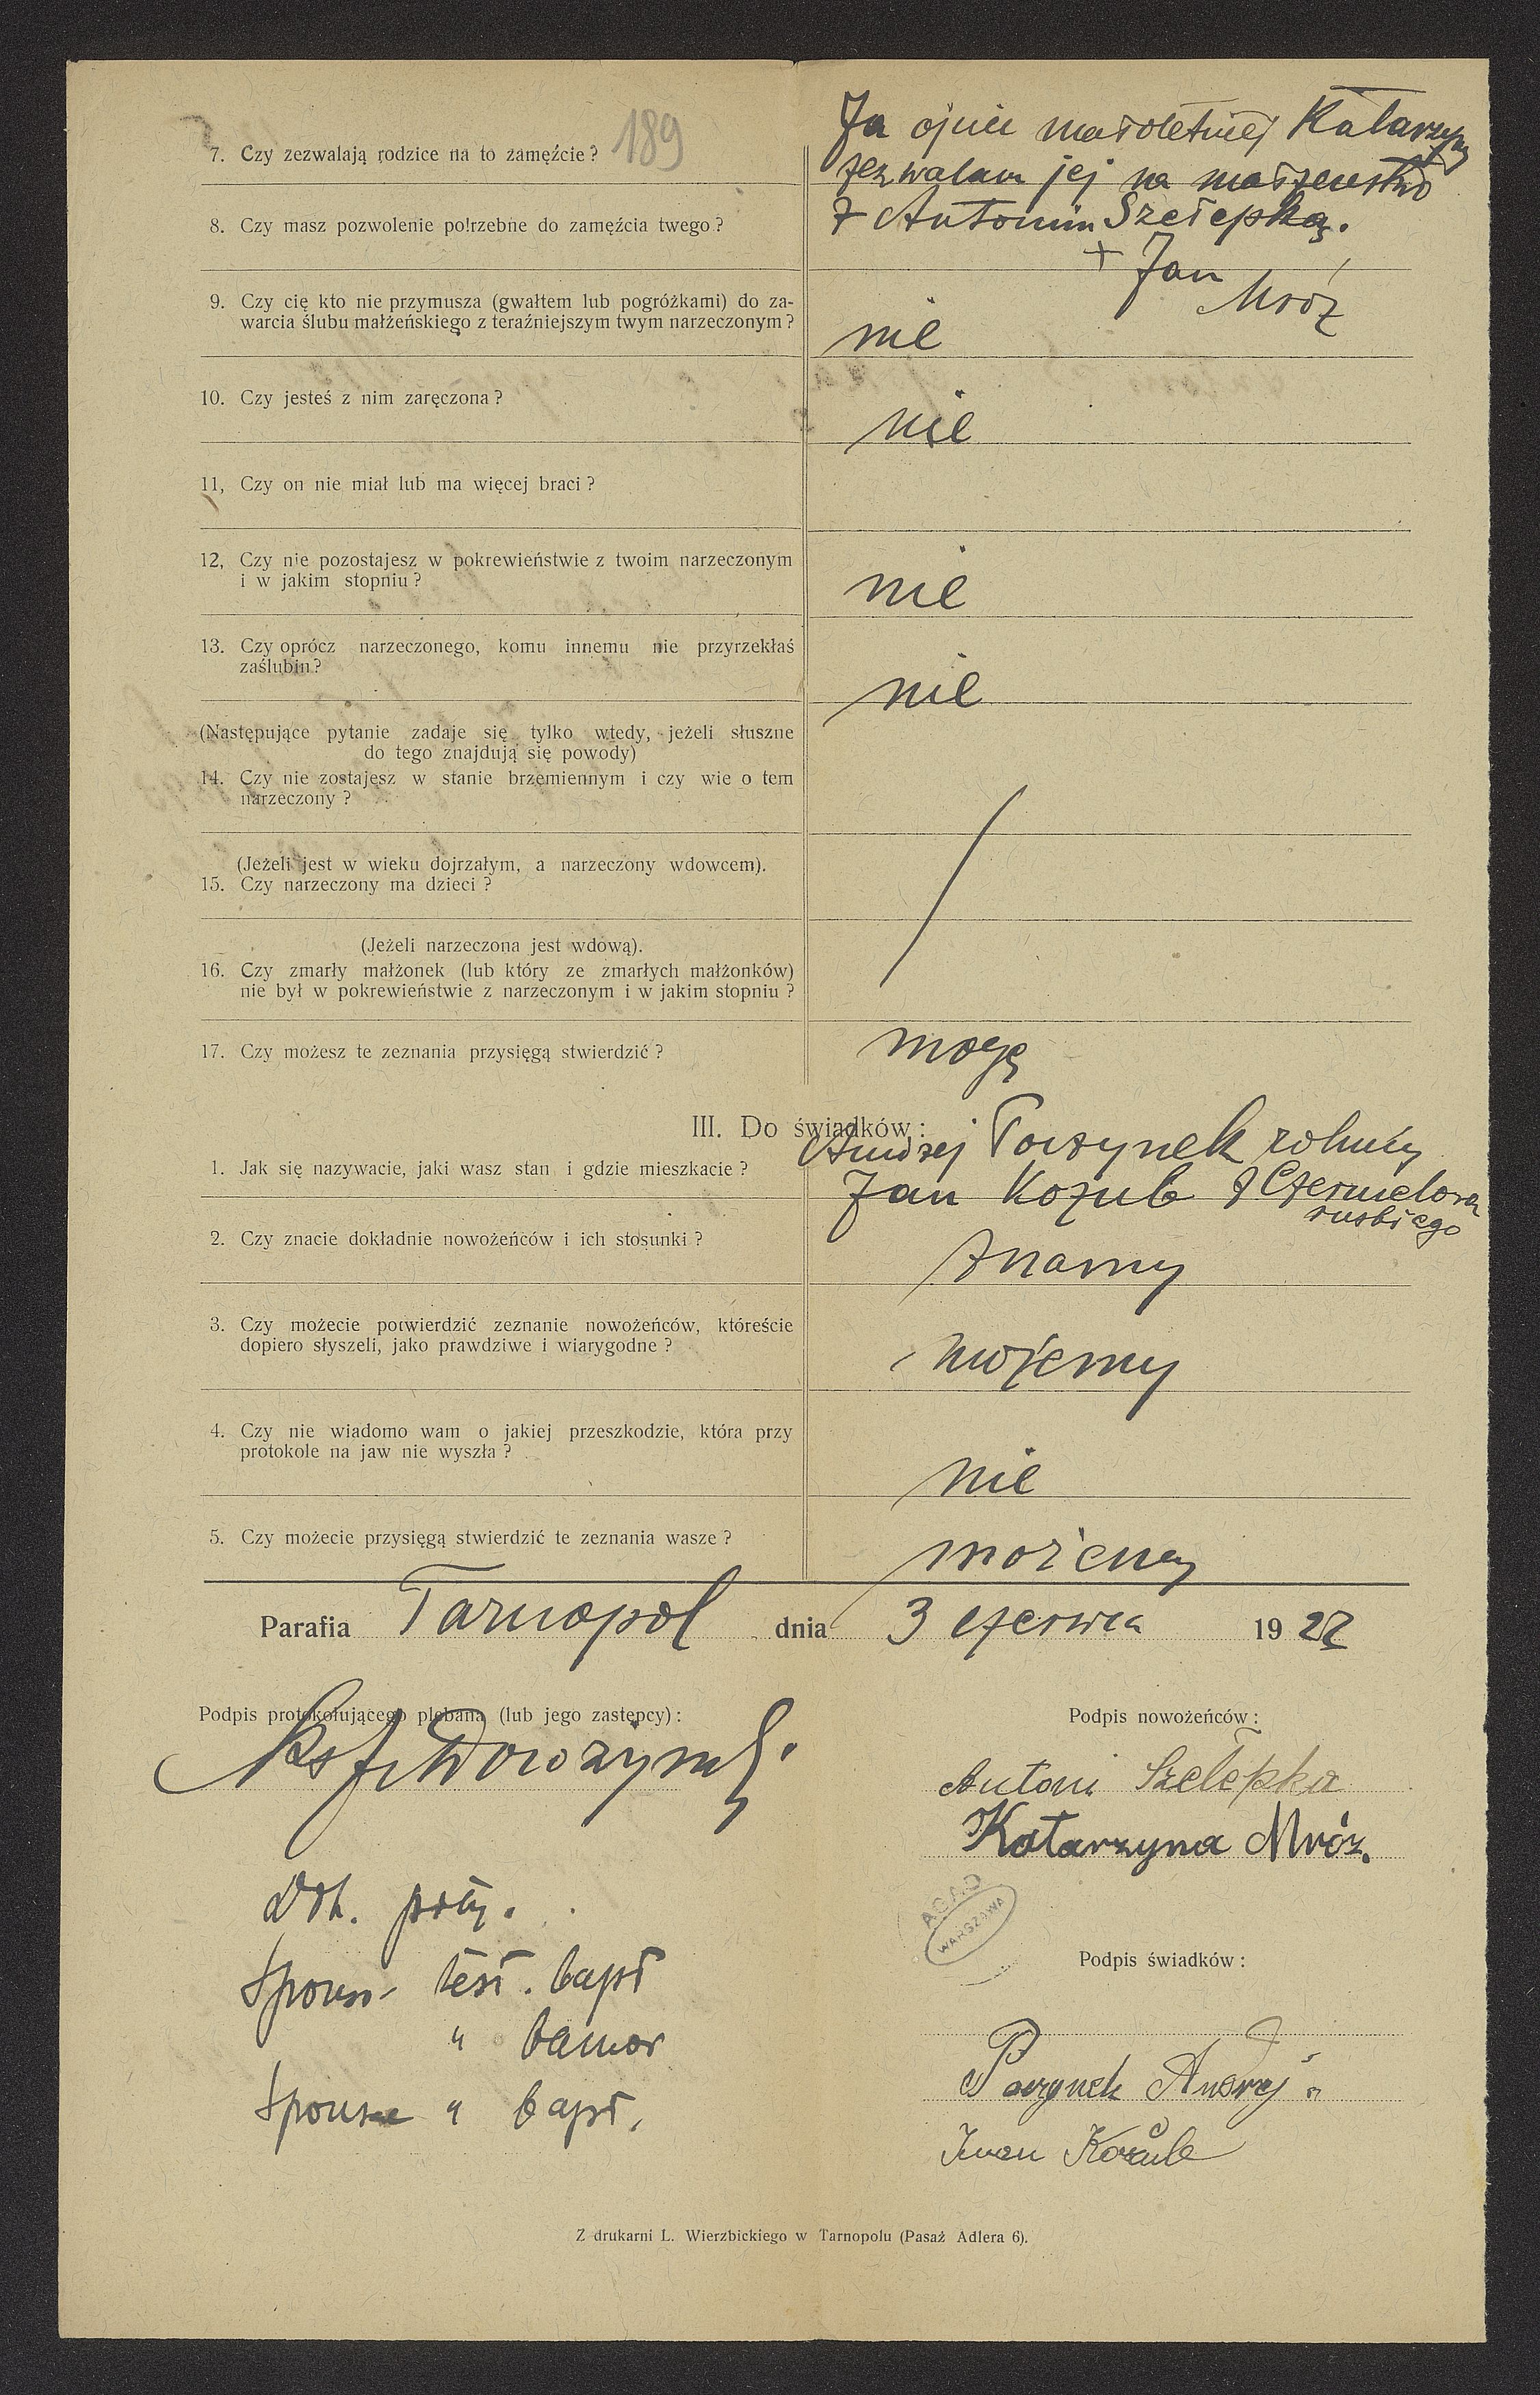 189
7. Czy zezwalają rodzice na to zamęźcie?
Ja ojciec małoletniej Katarzyny
zezwalam jej na małżeństwo
z Antonim Szełepką.
+ Jan
Mróz
8. Czy masz pozwolenie potrzebne do zamęźcia twego?
9. Czy cię kto nie przymusza (gwałtem lub pogróżkami) do za-
warcia ślubu małżeńskiego z teraźniejszym twym narzeczonym?
nie
10. Czy jesteś z nim zaręczona?
nie
11, Czy on nie miał lub ma więcej braci?
12, Czy nie pozostajesz w pokrewieństwie z twoim narzeczonym
i w jakim stopniu?
nie
13. Czy oprócz narzeczonego, komu innemu nie przyrzekłaś
zaślubin?
nie
(Następujące pytanie zadaje się tylko wtedy, jeżeli słuszne
do tego znajdują się powody)
14. Czy nie zostajesz w stanie brzemiennym i czy wie o tem
narzeczony?
(Jeżeli jest w wieku dojrzałym, a narzeczony wdowcem).
15. Czy narzeczony ma dzieci?
(Jeżeli narzeczona jest wdową).
16. Czy zmarły małżonek (lub który ze zmarłych małżonków)
nie był w pokrewieństwie z narzeczonym i w jakim stopniu?
17. Czy możesz te zeznania przysięgą stwierdzić?
mogę
III. Do świadków:
1. Jak się nazywacie, jaki wasz stan i gdzie mieszkacie?
Andrzej rolnicy
Jan Kozub z
ruskiego
2. Czy znacie dokładnie nowożeńców i ich stosunki?
znamy
3. Czy możecie potwierdzić zeznanie nowożeńców, któreście
dopiero słyszeli, jako prawdziwe i wiarygodne?
możemy
4. Czy nie wiadomo wam o jakiej przeszkodzie, która przy
protokole na jaw nie wyszła?
nie
5. Czy możecie przysięgą stwierdzić te zeznania wasze?
możemy
Parafia Tarnopol dnia 3 czerwca 1922
Podpis protokołującego plebana (lub jego zastępcy):
Ks
Podpis nowożeńców:
Antoni Szełepka
Katarzyna Mróz.
AGAD
WARSZAWA
Sponsi test. bapt
" bannor
Sponsae " bapt.
Podpis świadków:
Andrej
Iwan Kozub
Z drukarni L. Wierzbickiego w Tarnopolu (Pasaż Adlera 6).